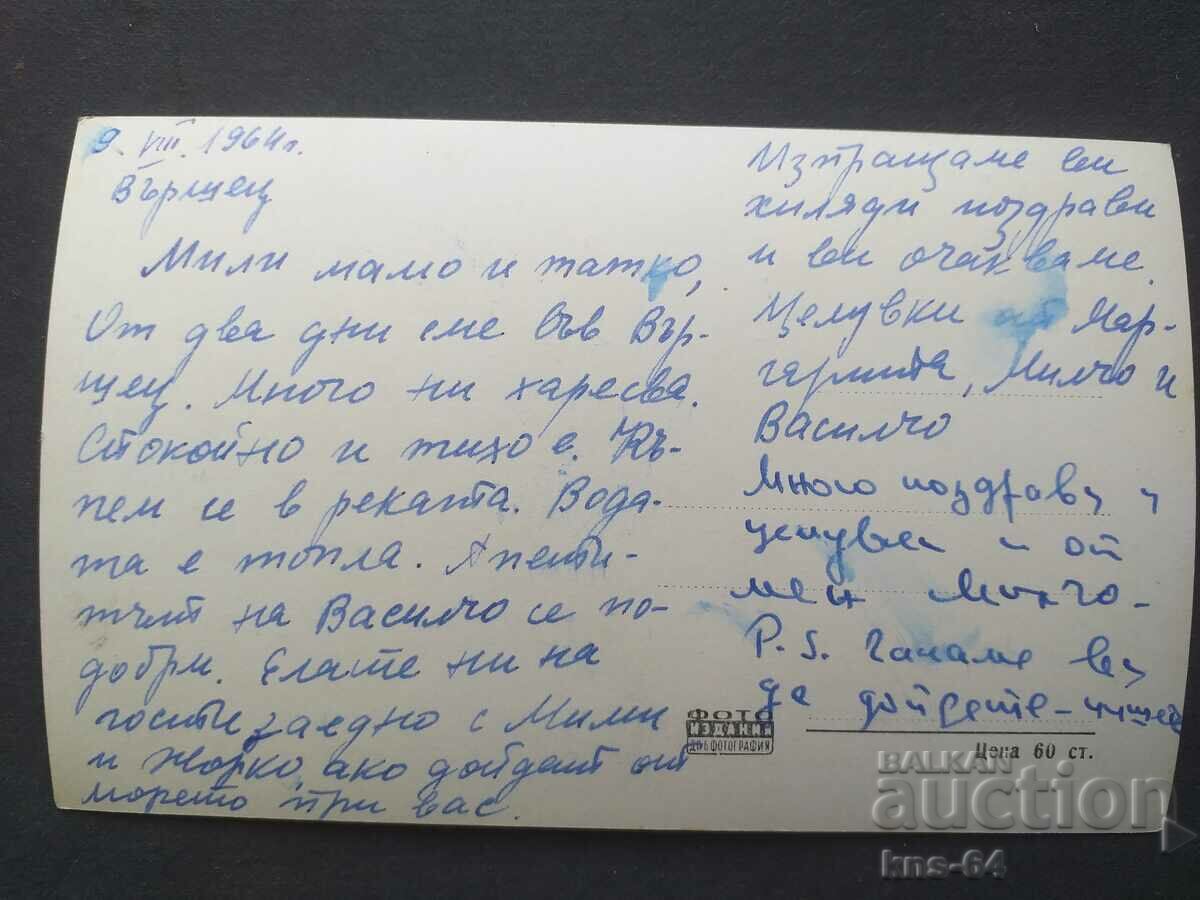 9. VIII. 1964г.
Вършец
Мили мамо и татко,
От два дни сме във Вър-
шец. Много ни харесва.
Спокойно и тихо е. Къ-
пем се в реката. Вода-
та е топла. Апети-
тът на Василчо се по-
добри. Елате ни на
гости заедно с Мими
и Жорко, ако дойдат от
морето при вас.
Изпращаме ви
хиляди поздрави
и ви очакваме.
Целувки от Мар-
гарита, Милчо и
Василчо
Много поздрави и
целувки и от
мен
P.S. Чакаме ви
да дойдете - пишете
ФОТО
ИЗДАНИЯ
ДП БЪЛГ. ФОТОГРАФИЯ
Цена 60 ст.
BALKAN
auction
kns-64